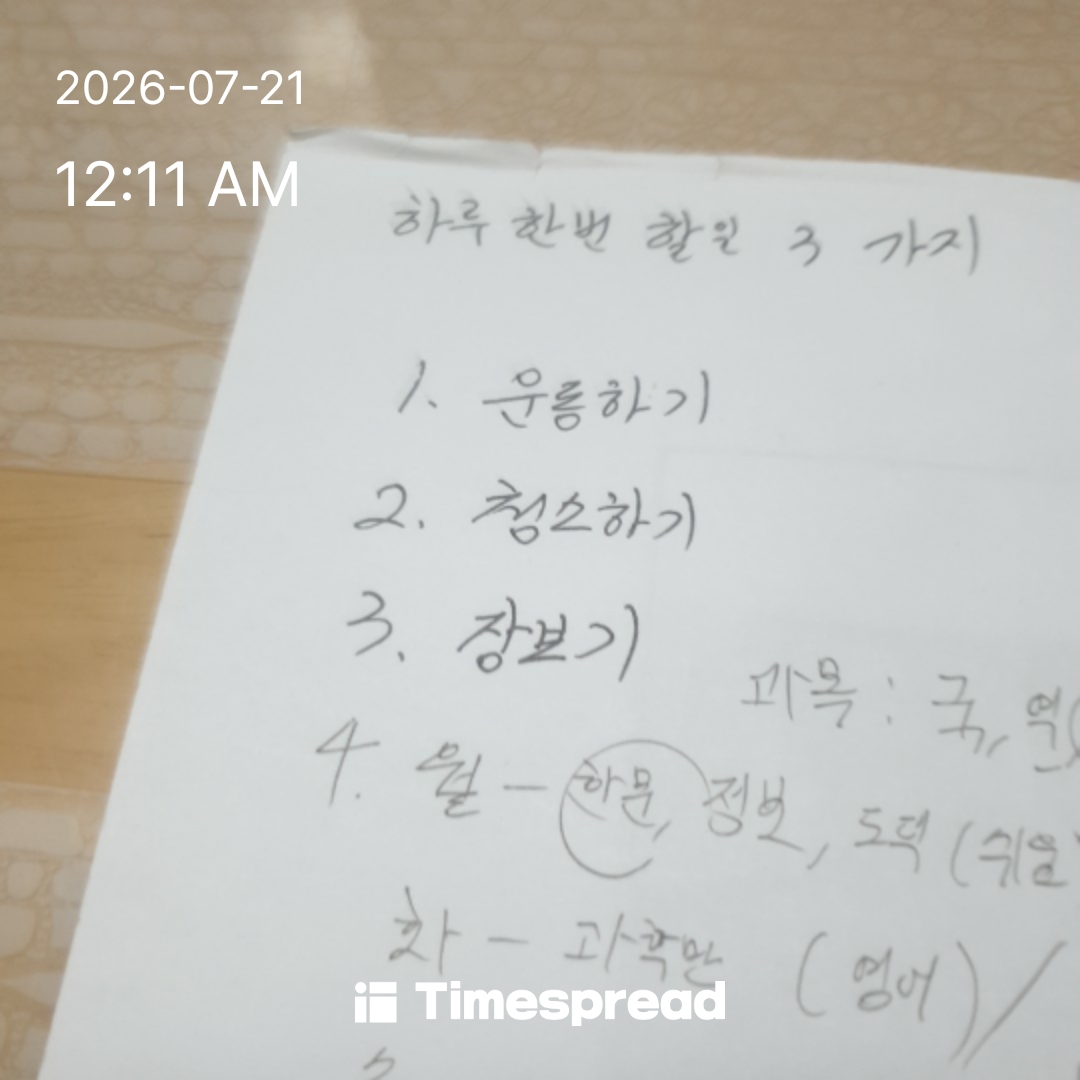 2026-07-21
12:11 AM
하루 한번 할일 3 가지
1. 운동하기
2. 청소하기
3. 장보기
과목 : 국, 역(
4. 월 - 한문, 정보, 도덕 (쉬운
화 - 과학만 (영어) /
Timespread